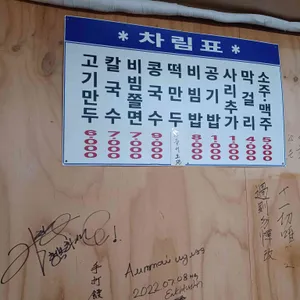 * 차림표 *
고기만두 6000
칼국수 7000
비빔쫄면 7000
콩국수 9000
떡만
비빔밥 8000
공기밥 1000
사리추가 1000
막걸리 4000
소주.맥주 5000
手打
2022.07.08